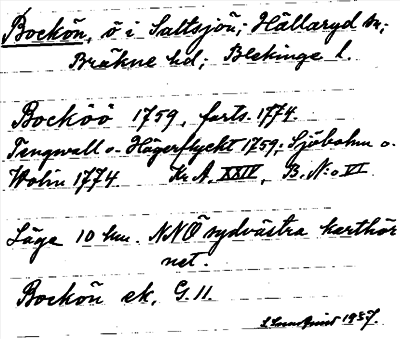 Bockön, ö i Saltsjön; Hällaryd sn;
Bräkne hd; Blekinge l.
Bocköö 1759, forts. 1774.
Tengwall o. Hägerflycht 1759; Sjöbohm o.
Wolin 1774 Kr. A. XXIV, B. N:o VI
Läge 10 km. NNÖ sydvästra karthör
net.
Bockön ek. G. 11.
1937.